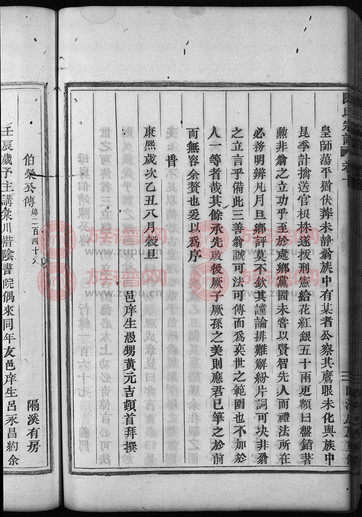 皇師蕩平猶伏莽未靜翁族中有某者公察其鷹眼未化與族中
昆季計擒送官根株遂拔刑憲給花紅銀五十兩更頼曰盤錯著
勲非翁之立功乎至於處鄉黨固未嘗以賢智先人而禮法所在
必務明辨凡月旦鄉評莫不欽其讜論排難解紛片詞可决非翁
之立言乎備此三善翁誠可法可傳而爲奕世之範圍也不加於
人一等者哉其餘承先啟後厥子厥孫之美則應君已筆之於前
而無容余贅也爰以爲序
旹
康熙歲次乙丑八月穀旦
邑庠生愚甥黃元吉頓首拜撰
伯榮公傳
隔溪有房
壬辰歲予主講棠川惜陰書院偶來同年友邑庠生呂永昌約余